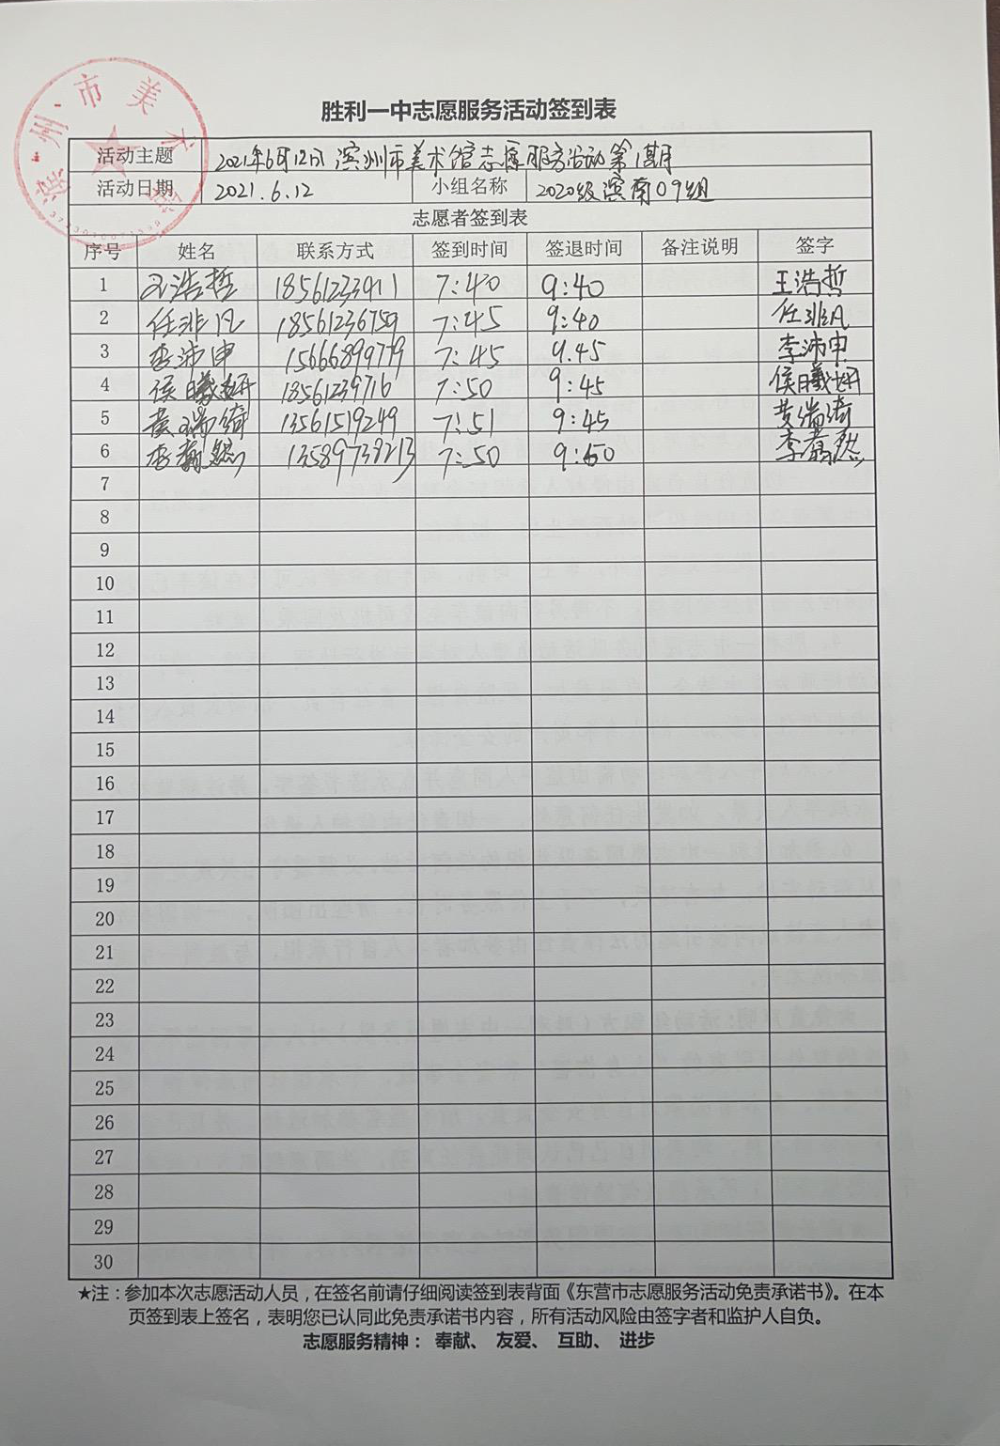 滨州市美术馆
胜利一中志愿服务活动签到表
活动主题 2021年6月12日滨州市美术馆志愿服务活动第1期
活动日期 2021.6.12 小组名称 2020级滨南09组
志愿者签到表
序号 姓名 联系方式 签到时间 签退时间 备注说明 签字
1 王浩哲 18561233911 7:40 9:40 王浩哲
2 任非凡 18561236759 7:45 9:40 任非凡
3 李沛申 15666899779 7:45 9.45 李沛申
4 侯曦妍 18561239716 7:50 9:45 侯曦妍
5 黄瑞绮 13561519249 7:51 9:45 黄瑞绮
6 李 13589739213 7:50 9:50 李
7
8
9
10
11
12
13
14
15
16
17
18
19
20
21
22
23
24
25
26
27
28
29
30
★注：参加本次志愿活动人员，在签名前请仔细阅读签到表背面《东营市志愿服务活动免责承诺书》。在本
页签到表上签名，表明您已认同此免责承诺书内容，所有活动风险由签字者和监护人自负。
志愿服务精神： 奉献、 友爱、 互助、 进步